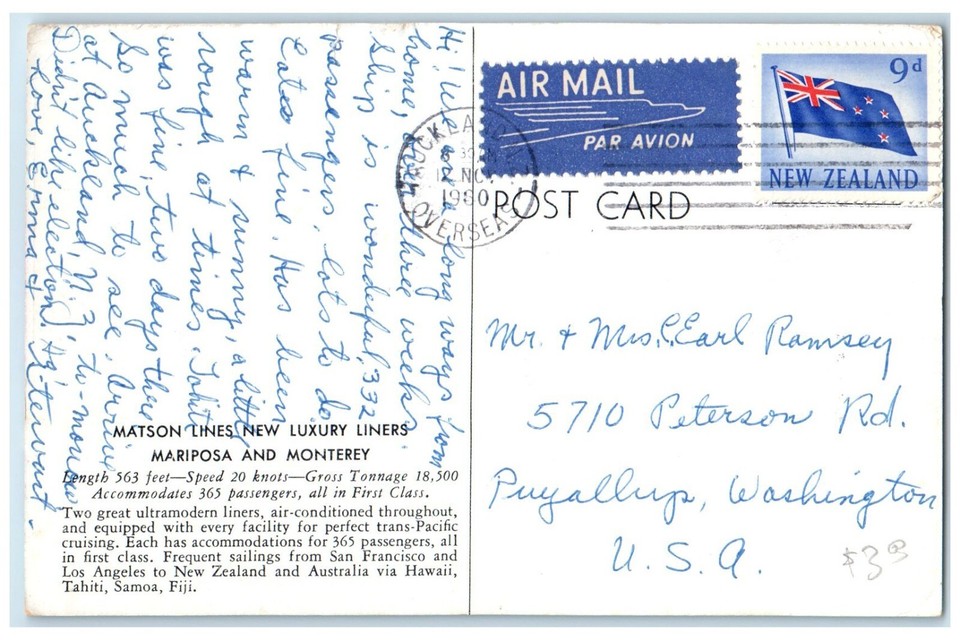 Hi! We a long ways from
home, out three weeks.
Ship is wonderful, 332
passengers, lots to do
Eates fine. Has been
warm & sunny, a little
rough at times. Tahiti
was fine, two days there
So much to see. Arrive
at Auckland, N. Z, to-morrow
Didn't like election.
Love, Erma &
AIR MAIL
PAR AVION
AUCKLAND
12 NOV
1960
OVERSEAS
9d
NEW ZEALAND
POST CARD
Mr. & Mrs. Earl Ramsey
5710 Peterson Rd.
Puyallup, Washington
U. S. A.
$3.00
MATSON LINES NEW LUXURY LINERS
MARIPOSA AND MONTEREY
Length 563 feet—Speed 20 knots—Gross Tonnage 18,500
Accommodates 365 passengers, all in First Class.
Two great ultramodern liners, air-conditioned throughout,
and equipped with every facility for perfect trans-Pacific
cruising. Each has accommodations for 365 passengers, all
in first class. Frequent sailings from San Francisco and
Los Angeles to New Zealand and Australia via Hawaii,
Tahiti, Samoa, Fiji.